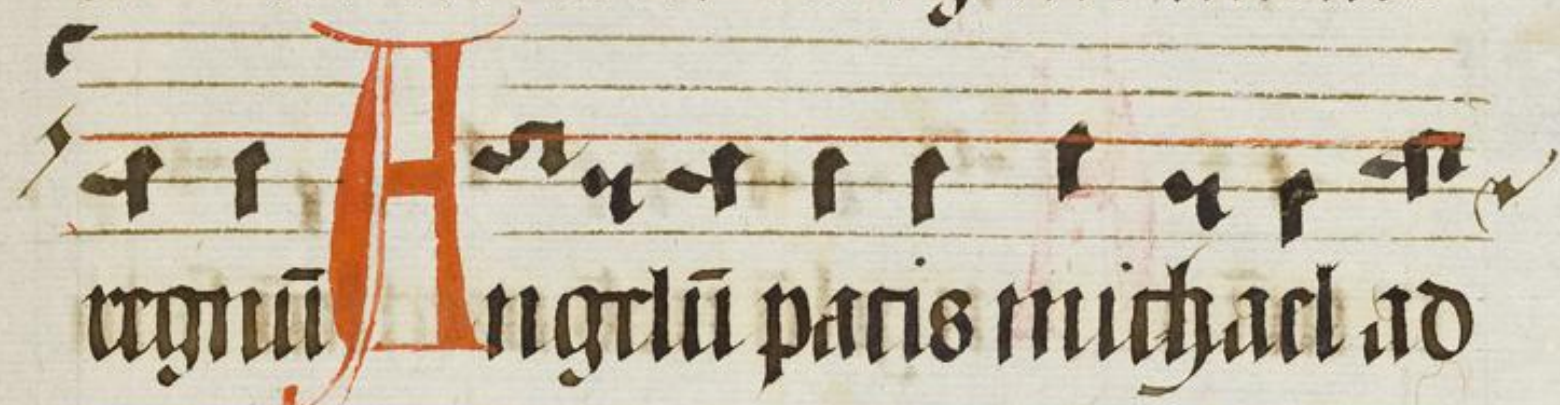 regnū Angelū pacis michael ad